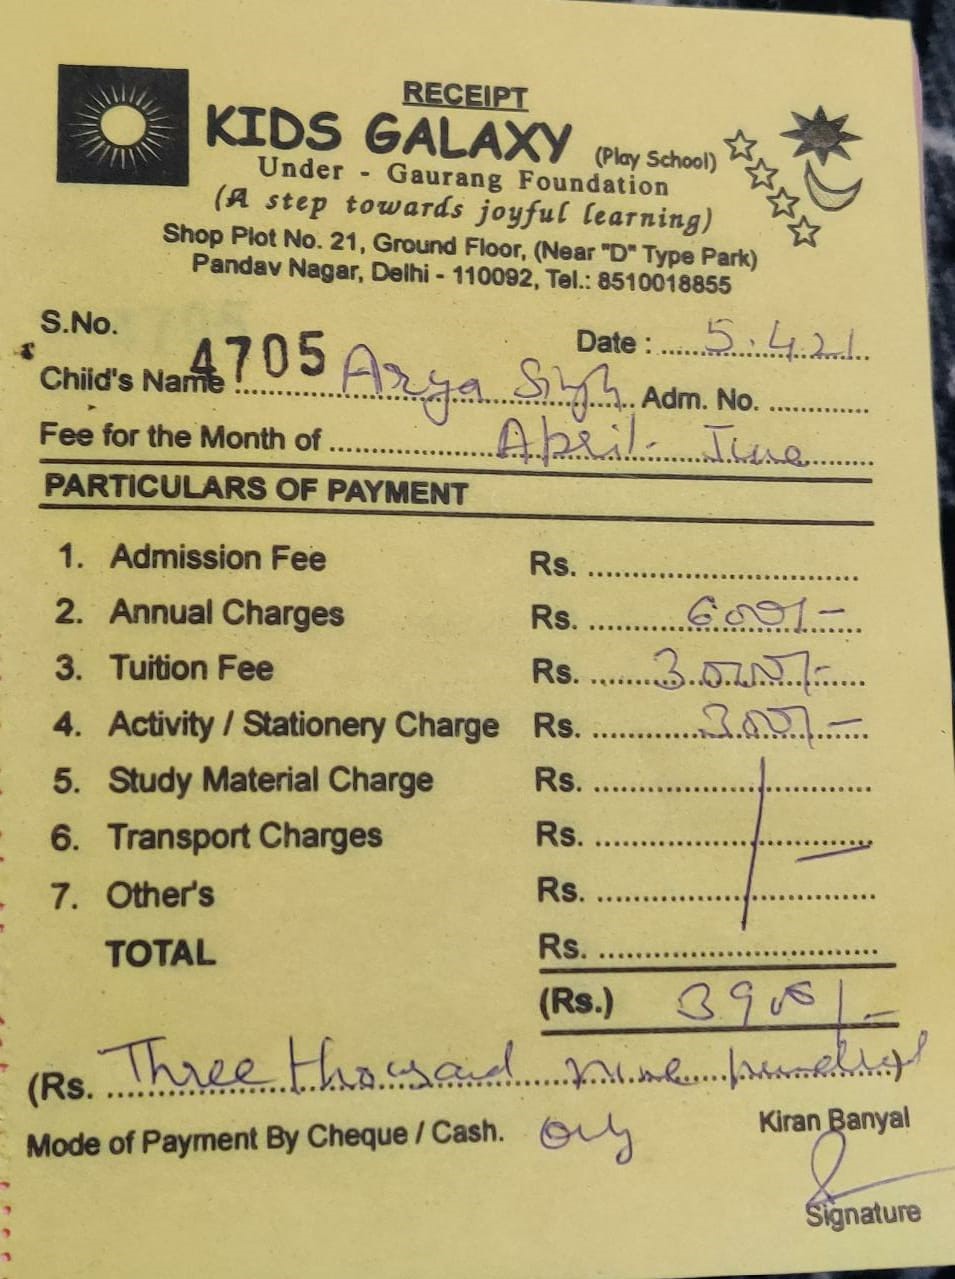 RECEIPT
KIDS GALAXY (Play School)
Under - Gaurang Foundation
(A step towards joyful learning)
Shop Plot No. 21, Ground Floor, (Near "D" Type Park)
Pandav Nagar, Delhi - 110092, Tel.: 8510018855
S.No. 4705 Date : 5.4.21
Child's Name : Arya Singh Adm. No.
Fee for the Month of April - June
PARTICULARS OF PAYMENT
1. Admission Fee Rs.
2. Annual Charges Rs. 600/-
3. Tuition Fee Rs. 3000/-
4. Activity / Stationery Charge Rs. 300/-
5. Study Material Charge Rs.
6. Transport Charges Rs.
7. Other's Rs.
TOTAL Rs.
(Rs.) 3900/-
(Rs. Three thousand nine hundred)
Mode of Payment By Cheque / Cash. Only Kiran Banyal
Signature